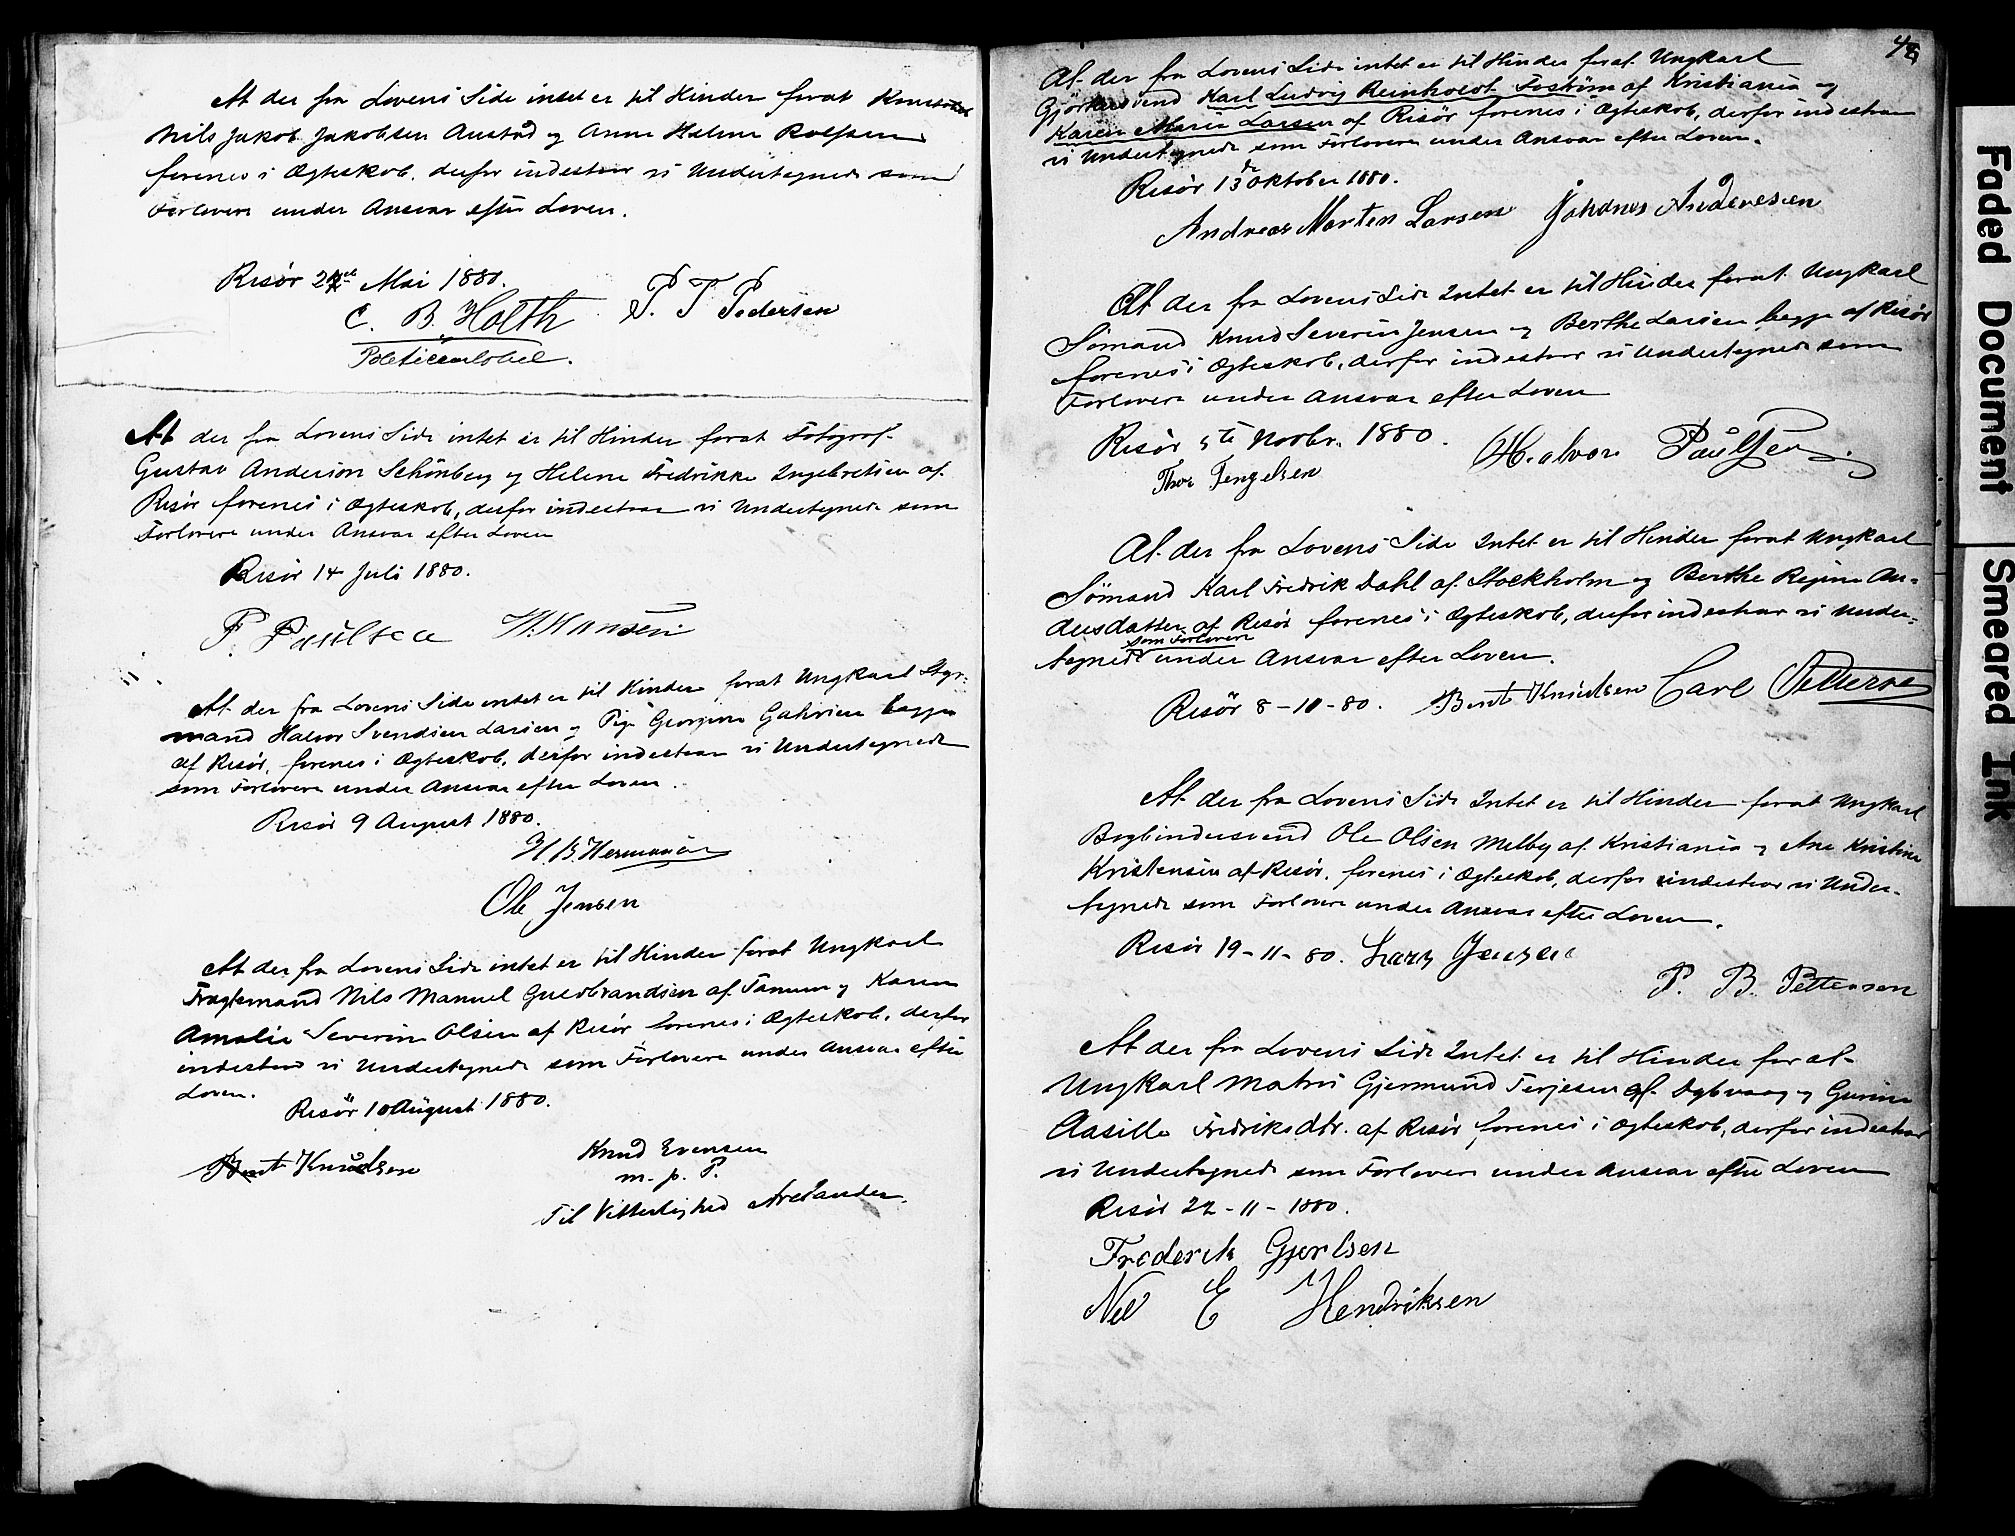 At der fra Lovens Side intet er til Hinder forat Konstabel
Nils Jakob Jakobsen Austad og Anne Helene Rolfsen
forenes i Ægteskab, derfor indestaar vi Undertegnede som
Forlovere under Ansvar efter Loven.
Risør 24de Mai 1880.
C. B. Holth P. T. Pedersen
Politiconstabel.
At der fra Lovens Side intet er til Hinder forat Fotograf
Gustav Anderson Schönberg og Helene Fredrikke Ingebretsen af
Risør forenes i Ægteskab, derfor indestaar vi Undertegnede som
Forlovere under Ansvar efter Loven
Risør 14 Juli 1880.
P. Paulsen H. Hansen
At der fra Lovens Side intet er til Hinder forat Ungkarl Styr-
mand Halvor Svendsen Larsen og Pige Georgine Gahrsen begge
af Risør, forenes i Ægteskab, derfor indestaar vi Undertegnede
som Forlovere under Ansvar efter Loven.
Risør 9 August 1880.
H. B. Hermansen
Ole Jensen
At der fra Lovens Side intet er til Hinder forat Ungkarl
Fragtemand Nils Manuel Guldbrandsen af Tanum og Karen
Amalie Severine Olsen af Risør forenes i Ægteskab, derfor
indestaar vi Undertegnede som Forlovere under Ansvar efter
Loven.
Risör 10 August 1880.
Berat Knudsen Knud Evensen
m. p. P.
Til Vitterlighed
46
At der fra Lovens Side intet er til Hinder forat Ungkarl
Gjörtlersvend Karl Ludvig Reinholdt Foström af Kristiania og
Karen Marie Larsen af Risør forenes i Ægteskab, derfor indestaar
vi Undertegnede som Forlovere under Ansvar efter Loven.
Risör 13de Oktober 1880.
Andreas Morten Larsen Johanes Anderesen
At der fra Lovens Side Intet er til Hinder forat Ungkarl
Sömand Knud Severin Jensen og Berthe Larsen begge af Risør
forenes i Ægteskab, derfor indestaar vi Undertegnede som
Forlovere under Ansvar efter Loven
Risör 5te Novbr. 1880. Halvor Paulsen
Thor Tengelsen
At der fra Lovens Side Intet er til Hinder forat Ungkarl
Sömand Karl Fredrik Dahl af Stockholm og Berthe Regine An-
dersdatter af Risør forenes i Ægteskab, derfor indestaar vi Under-
som Forlovere
tegnede under Ansvar efter Loven.
Risör 8-11-80. Berat Knudsen Carl Pettersen
At der fra Lovens Side Intet er til Hinder forat Ungkarl
Bogbindersvend Ole Olsen Melby af Kristiania og Ane Kristine
Kristensen af Risør, forenes i Ægteskab, derfor indestaar vi Under-
tegnede som Forlovere under Ansvar efter Loven.
Risör 19-11-80. Lars Jensen
P. B. Pettersen
At der fra Lovens Side Intet er til Hinder for at
Ungkarl Matros Gjermund Terjesen af Dybvaag og Gurine
Aasille Fredriksdtr. af Risør forenes i Ægteskab, derfor indestaar
vi Undertegnede som Forlovere under Ansvar efter Loven
Risör 22-11-1880.
Frederik Gjertsen
E Hendriksen
Faded Document
Smeared Ink